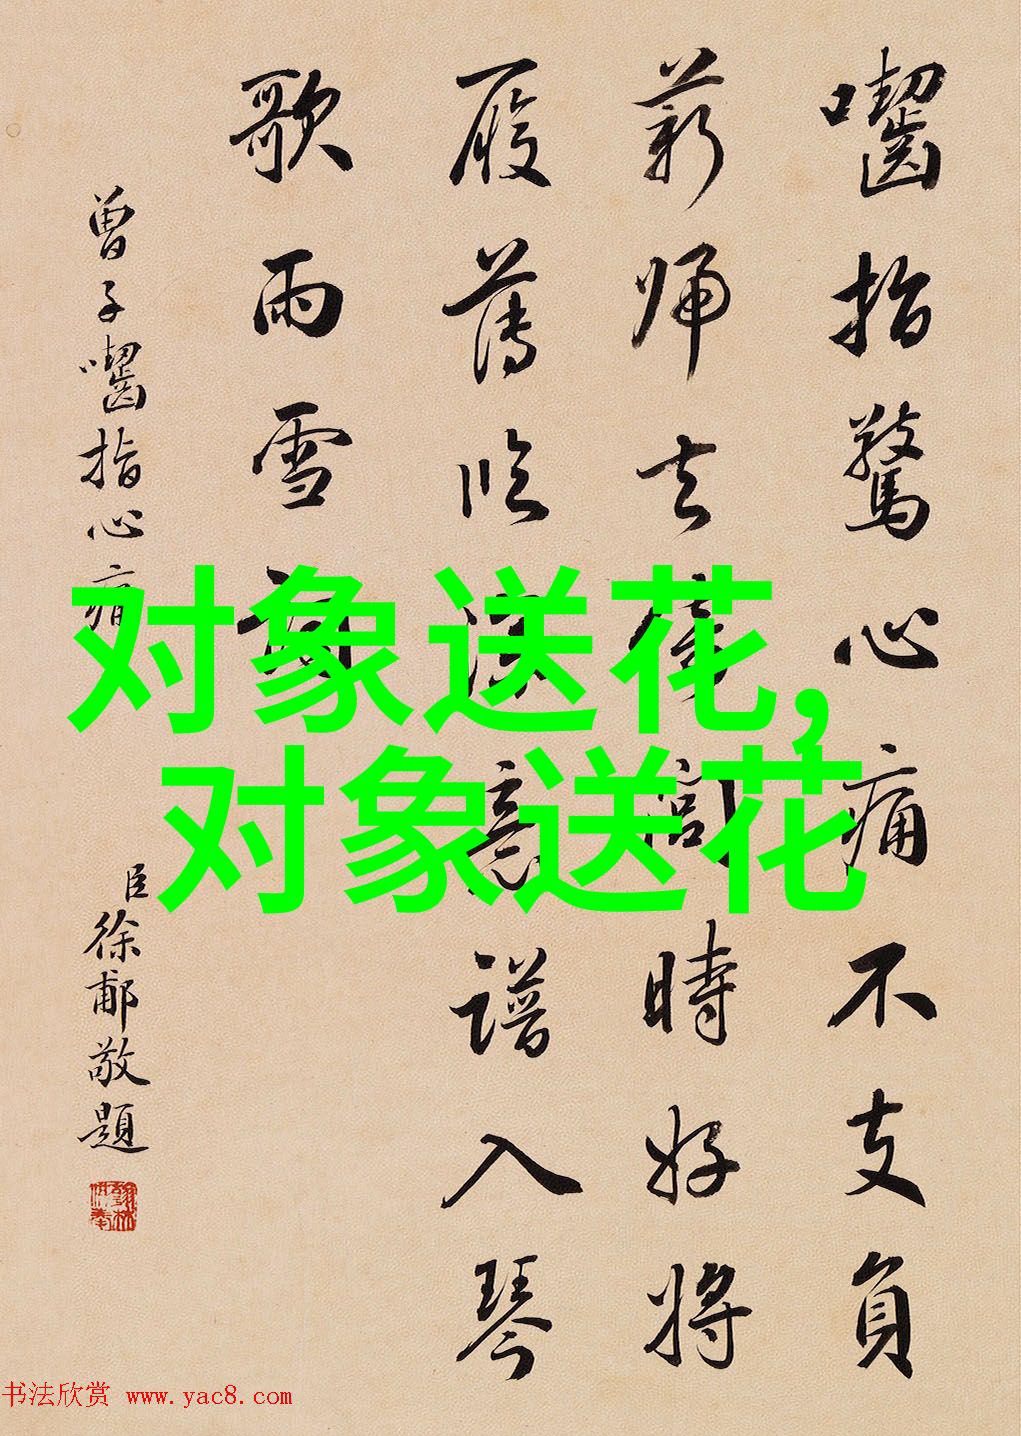 囓指驚心痛不支負
薪歸去時好將
履薄臨深意譜入琴
歌雨雪
曾子囓指心痛
臣徐郙敬題
对象送花,
对象送花
书法欣赏 www.yac8.com